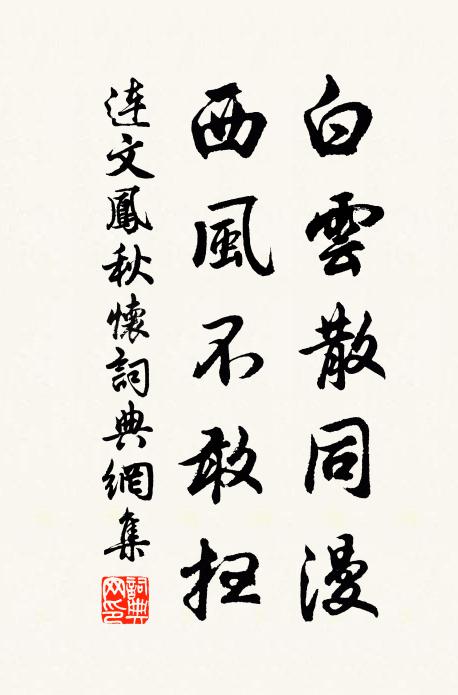 白雲散同漫
西風不敢狂
連文鳳秋懷詞典網集
詞典網印